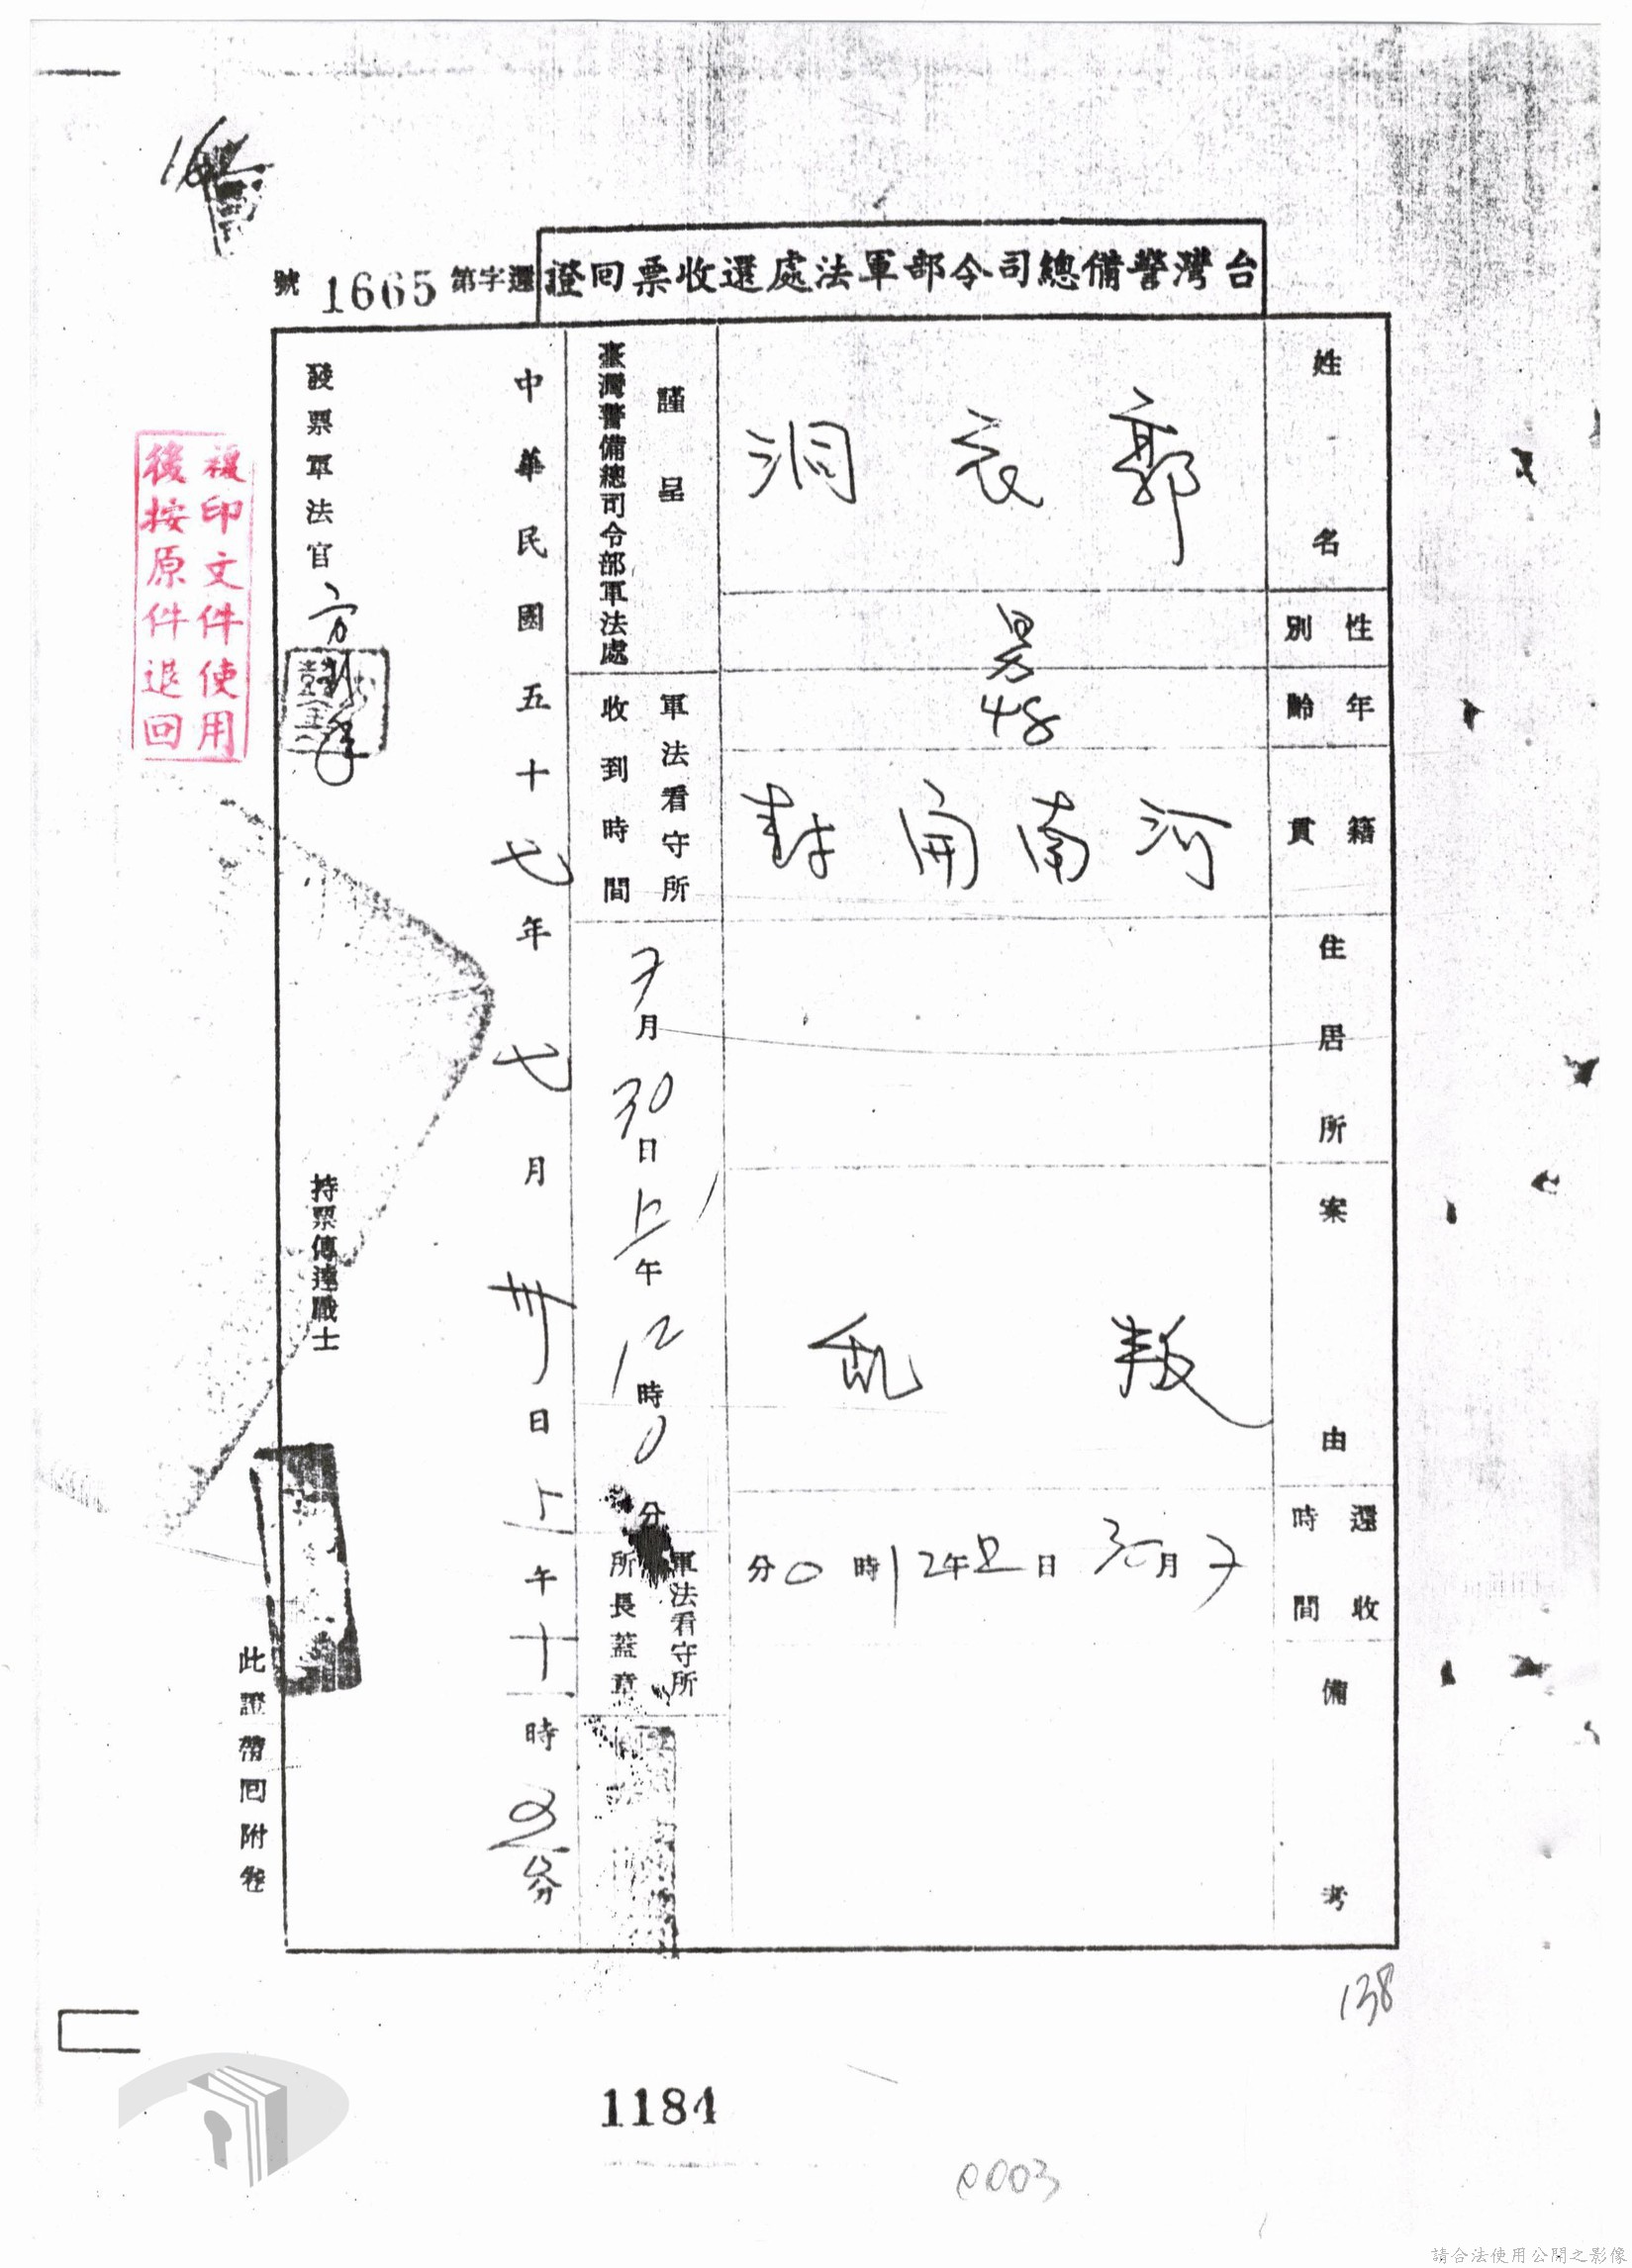 台灣警備總司令部軍法處還收票回證
還字第1665號
姓名
郭衣洞
性別
男
年齡
48
籍貫
河南開封
住居所
案由
叛乱
還收時間
7月30日上午12時0分
備考
謹呈
臺灣警備總司令部軍法處
軍法看守所
收到時間
7月30日上午12時0分
軍法看守所
所長蓋章
中華民國五十七年七月卅日上午十時0分
發票軍法官
持票傳達職士
此證帶回附卷
複印文件使用
後按原件退回
138
1184
0003
請合法使用公開之影像